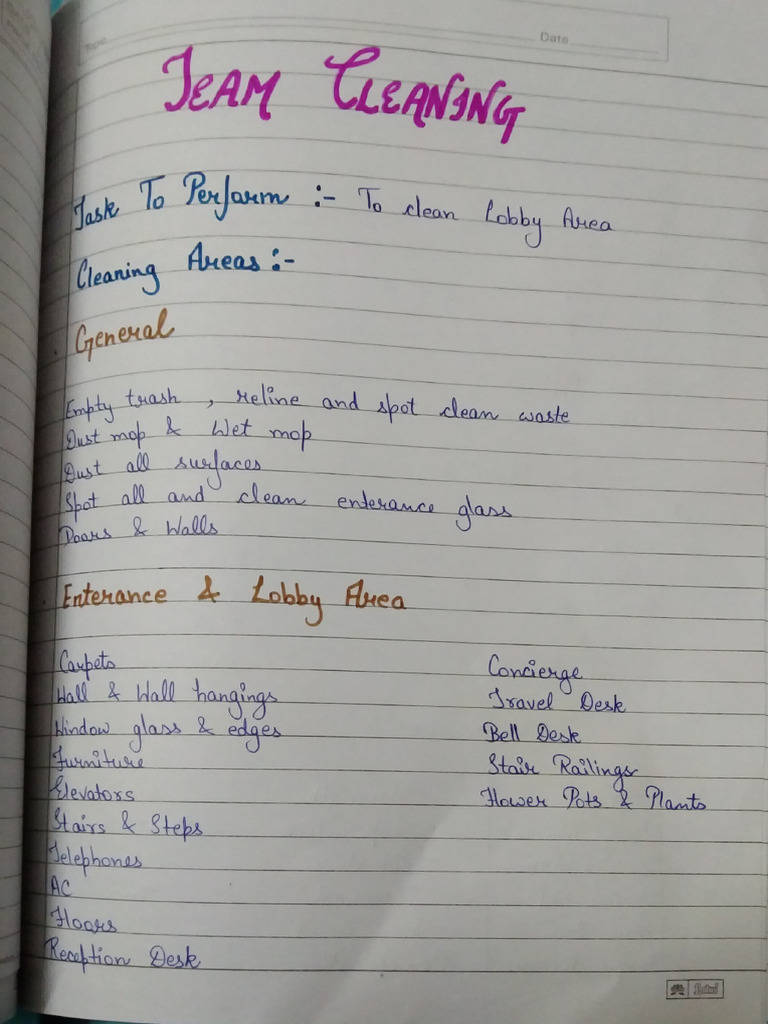 Topic
Date
TEAM CLEANING
Task To Perform :- To clean Lobby Area
Cleaning Areas :-
General
Empty trash , reline and spot clean waste
Dust mop & Wet mop
Dust all surfaces
Spot all and clean enterance glass
Doors & Walls
Enterance & Lobby Area
Carpets
Wall & Wall hangings
Window glass & edges
Furniture
Elevators
Stairs & Steps
Telephones
AC
Floors
Reception Desk
Concierge
Travel Desk
Bell Desk
Stair Railings
Flower Pots & Plants